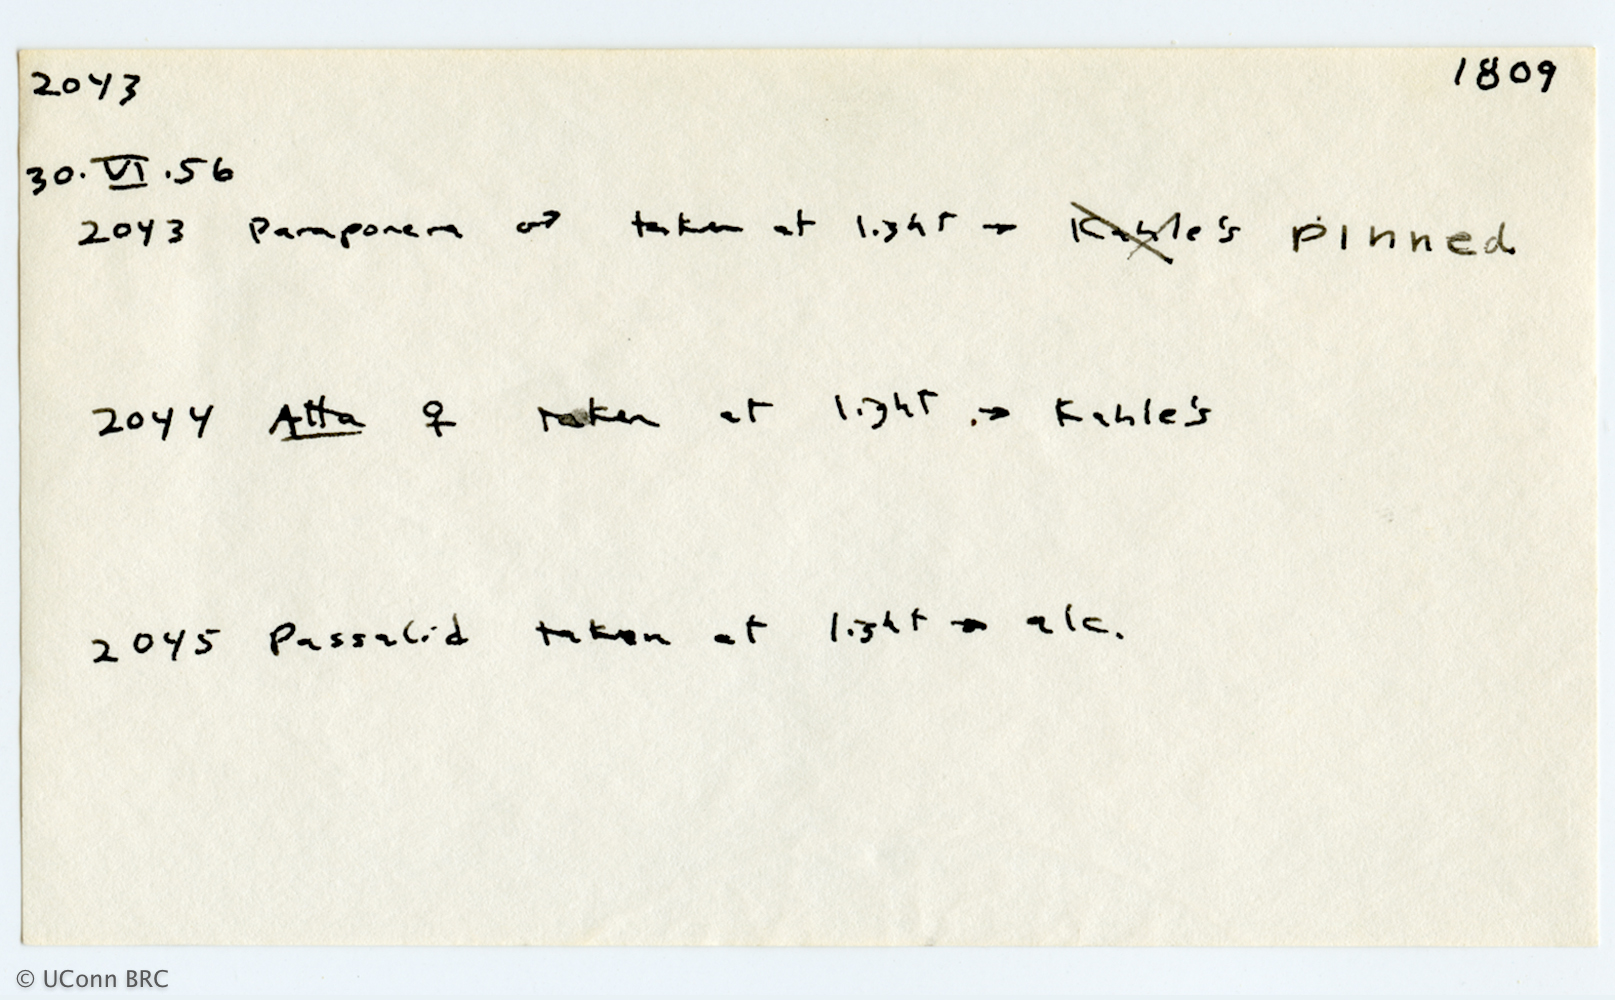 2043 1809
30.VI.56
2043 Paraponera ♂ taken at light → Kahle's Pinned
2044 Atta ♀ taken at light → Kahle's
2045 Passalid taken at light → alc.
© UConn BRC